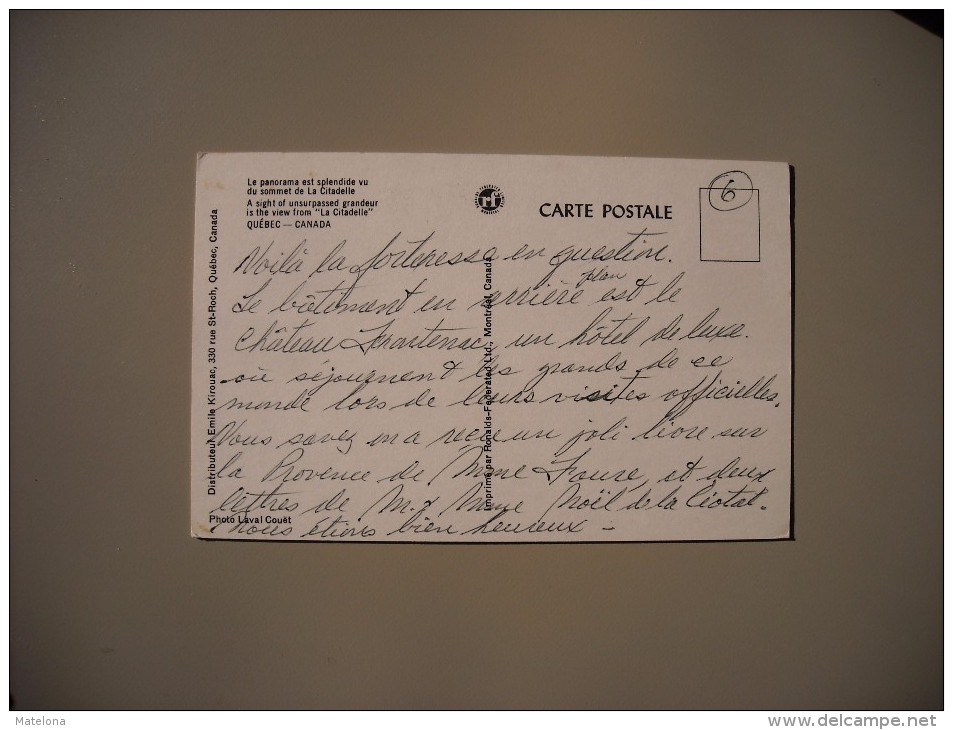 Le panorama est splendide vu
du sommet de La Citadelle
A sight of unsurpassed grandeur
is the view from "La Citadelle"
QUÉBEC — CANADA
CARTE POSTALE
6
Distributeur Emile Kirouac, 330 rue St-Roch, Québec, Canada
Imprimé par Ronalds-Federated Ltd., Montréal, Canada
Voilà la forteresse en question.
Le bâtiment en arrière plan est le
château Frontenac, un hôtel de luxe.
où séjournent les grands de ce
monde lors de leurs visites officielles.
Vous savez on a reçu un joli livre sur
la Provence de Mme Faure, et deux
lettres de M. & Mme Noël de la Ciotat.
nous étions bien heureux -
Photo Laval Couët
Matelona
www.delcampe.net